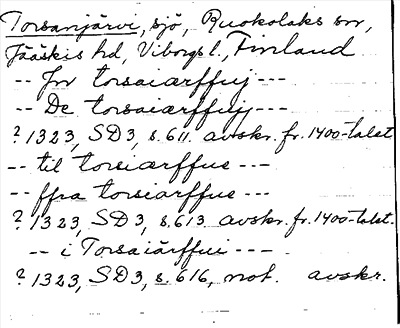 Torsanjärvi, sjö, Ruokolaks sn,
Jääskis hd, Viborgs l., Finland
-- Jn torsaiærffuj ---
-- De torsaiærffujj ---
? 1323, SD3, s. 611. avskr. fr. 1400-talet
-- til torsiærffue ---
-- ffra torsiærffue ---
? 1323, SD3, s. 613 avskr. fr. 1400-talet.
-- i Torsaiärffui ---
? 1323, SD3, s. 616, not. avskr.